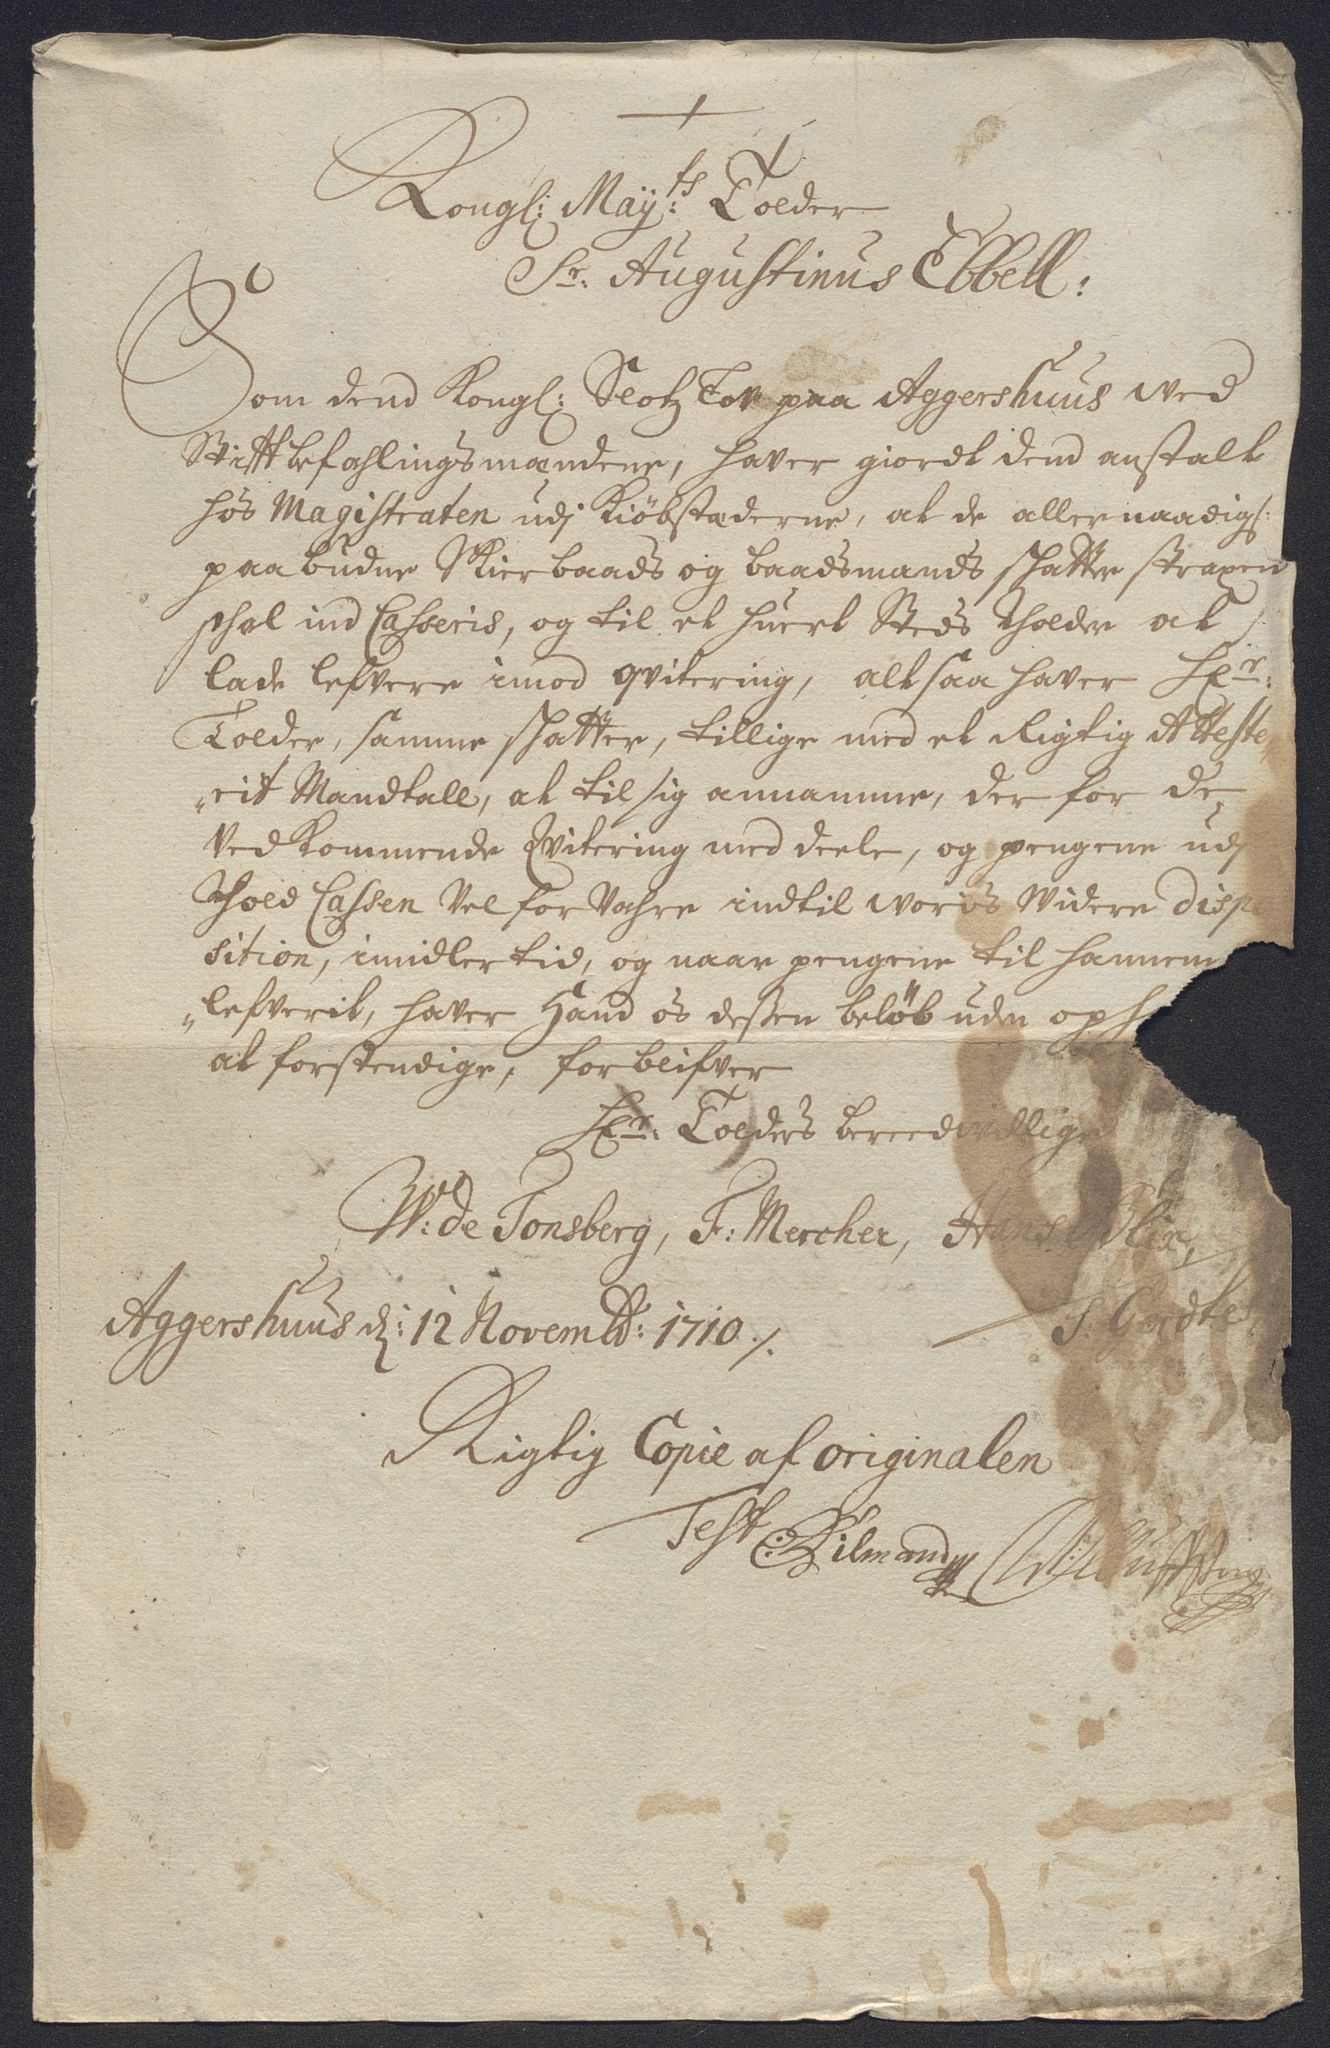 Kongl: May:ts Tolder
Sr: Augustinus Ebbell:
Som dend Kongl: Slotz Lov paa Aggershuus ved
Stiftbefahlingsmændene, haver giordt dend anstalt
hos Magistraten udj Kiöbstæderne, at de allernaadigst
paabudne Skierbaads og baadsmands skatter straxen
schal ind Casseris, og til et huert Steds tholder at
lade lefvere imod qvitering, altsaa haver Hr:
Tolder, samme skatter, tillige med et Rigtig Atteste,,
,,rit Mandtall, at til sig annamme, der for de
ved Kommende Qvitering med deele, og pengene udj
thold Cassen Vel for Vahre indtil worös Widere disp
sition, imidlertid, og naar pengene til hannem
,,lefverit, haver Hand os dessen belöb uden oph
at forstendige, forblifver
Hr: Tolders bereedvillige
W: de Tonsberg, F: Mercher, Hans
Aggershuus d: 12 Novembr: 1710 ./.
Rigtig Copie af originalen
Test